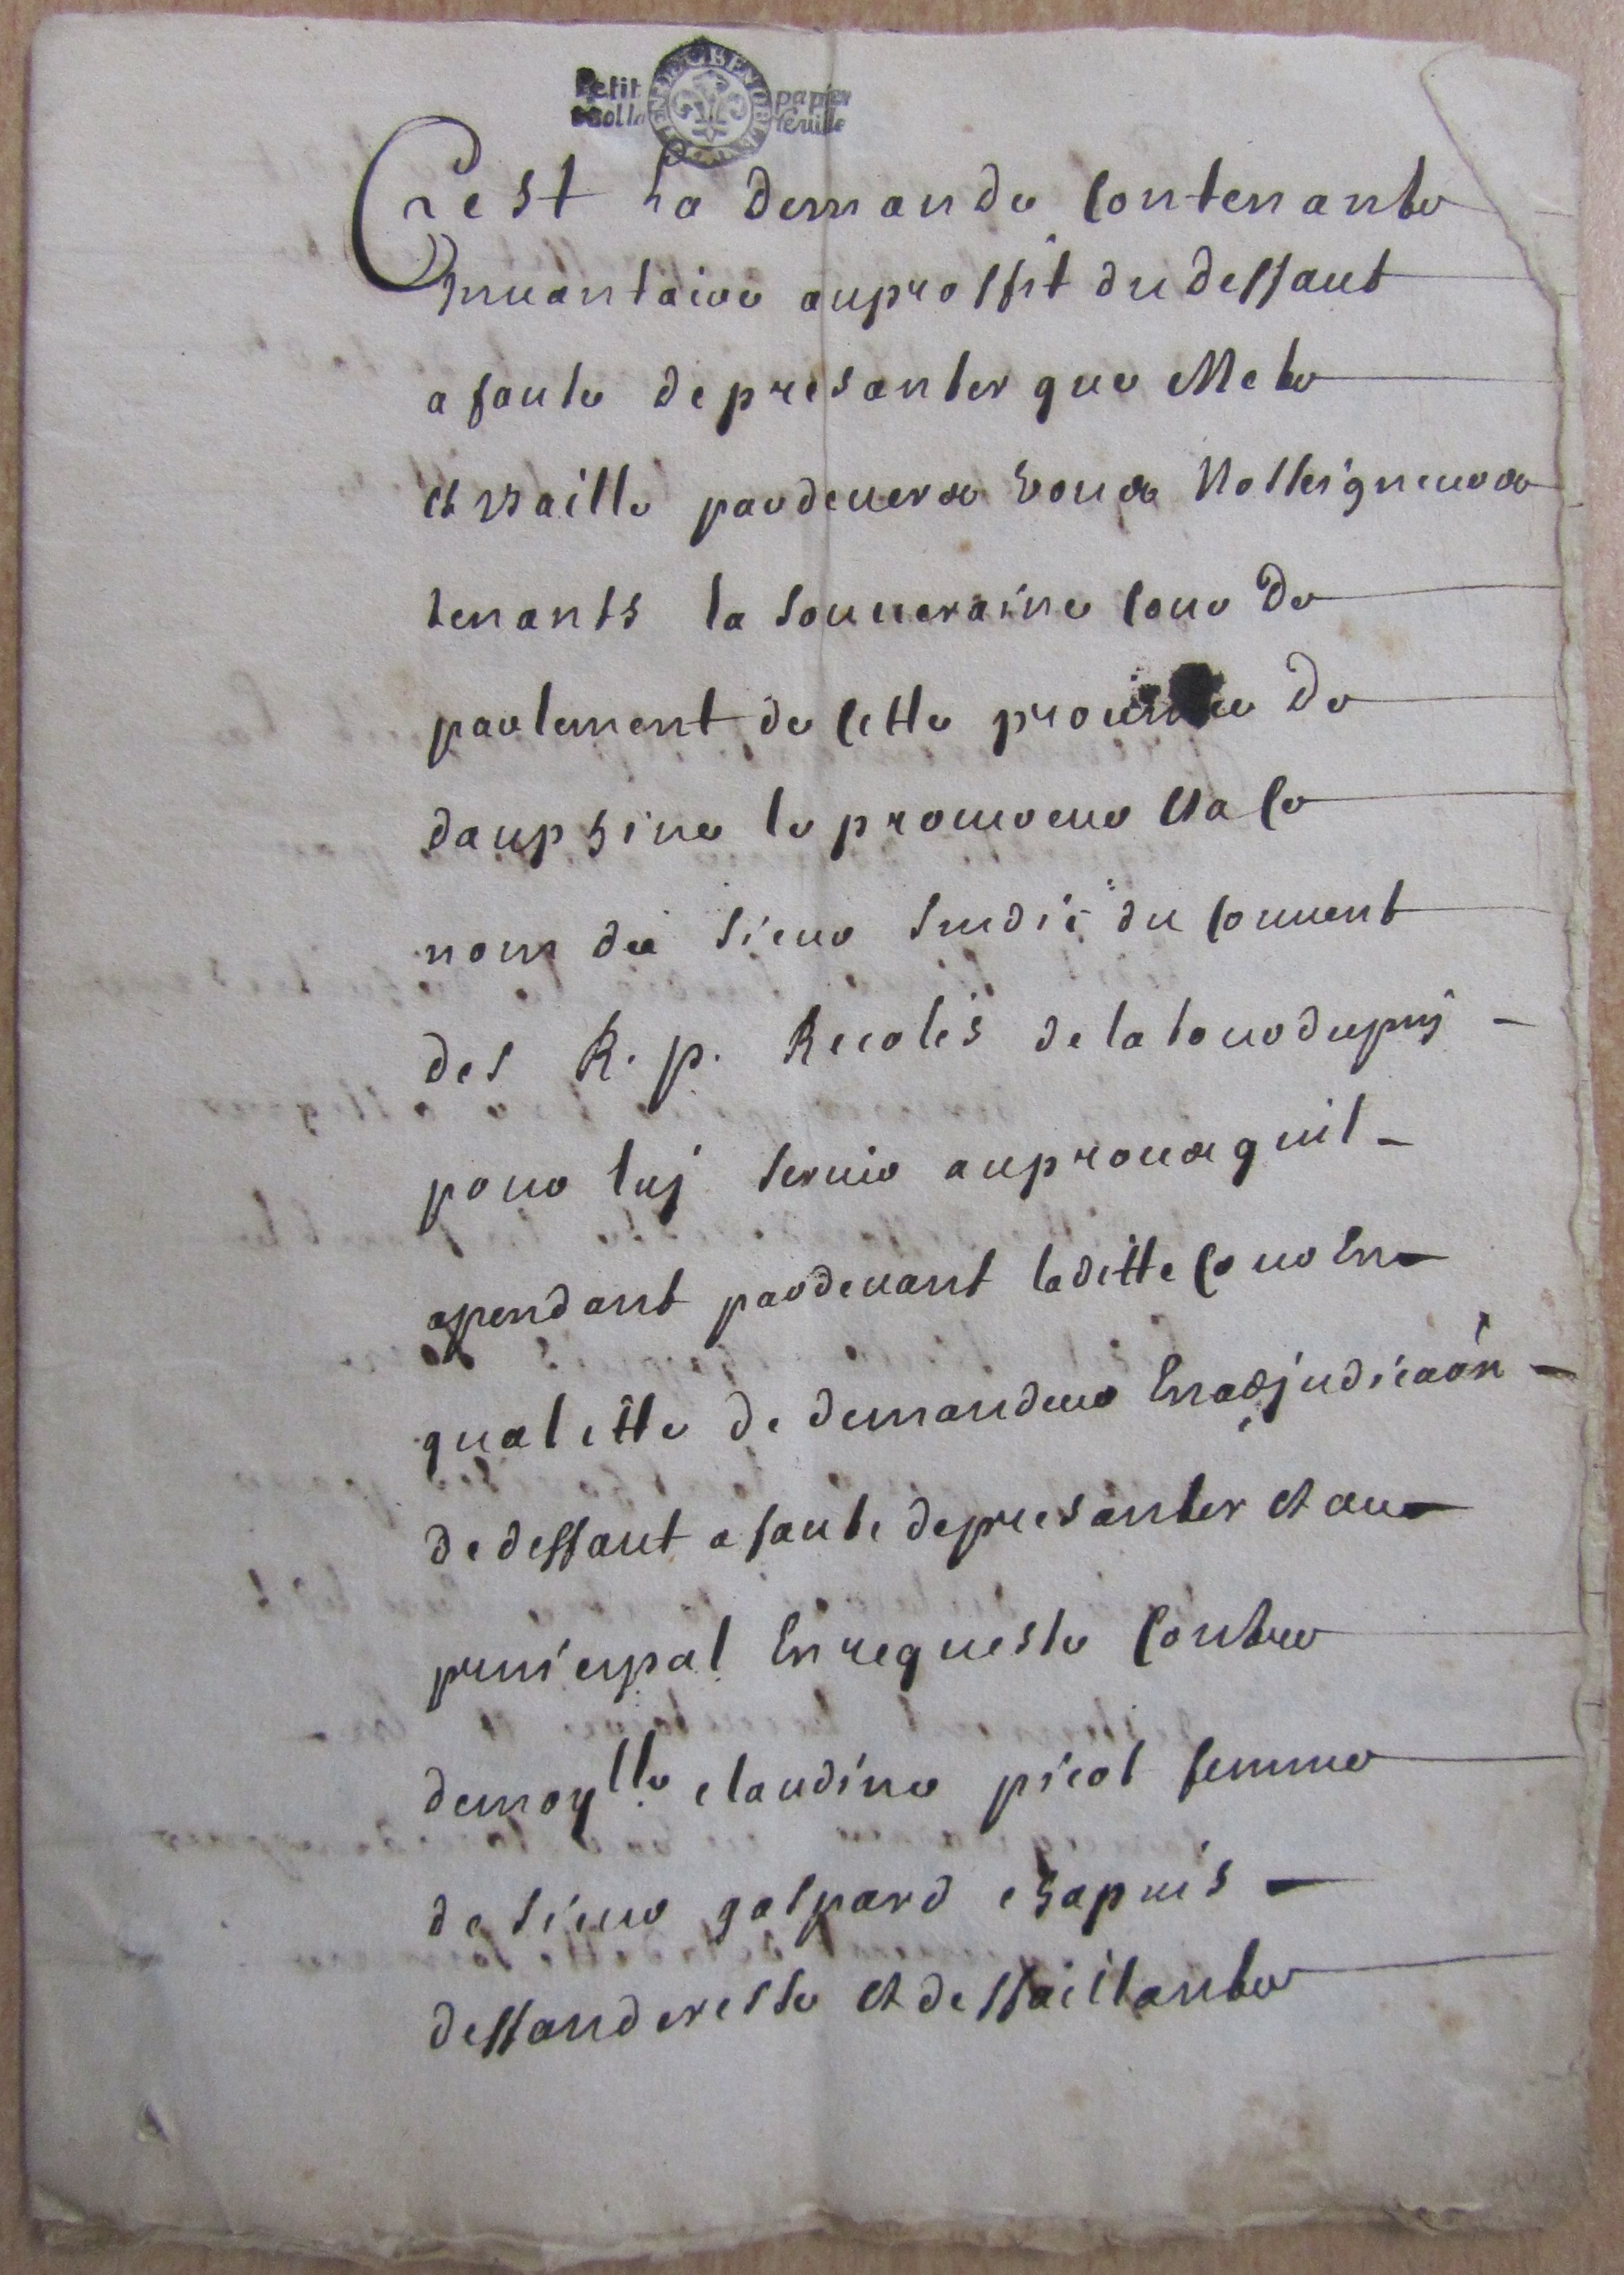 Petit papier
feuille
GRENOBLE
C'est La demande Contenante
Inuantaire auproffit du deffaut
a faute de presanter que Mete
et vaille pardeuers vous Nosseigneurs
tenants la souueraine Cour De
parlement de Cette prouince De
dauphine le procureur Et a Ce
nom du sieur sindic du Couuent
des R. p. Recoles de la tour dupin
pour luj seruir au proces quil
apendant pardeuant laditte Cour En
qualitte de demandeur En adjudicaôn
de deffaut a faute depresanter et au
principal En requeste Contre
demoylle claudine picot femme
de sieur gaspard chapuis
deffanderesse et deffaillante